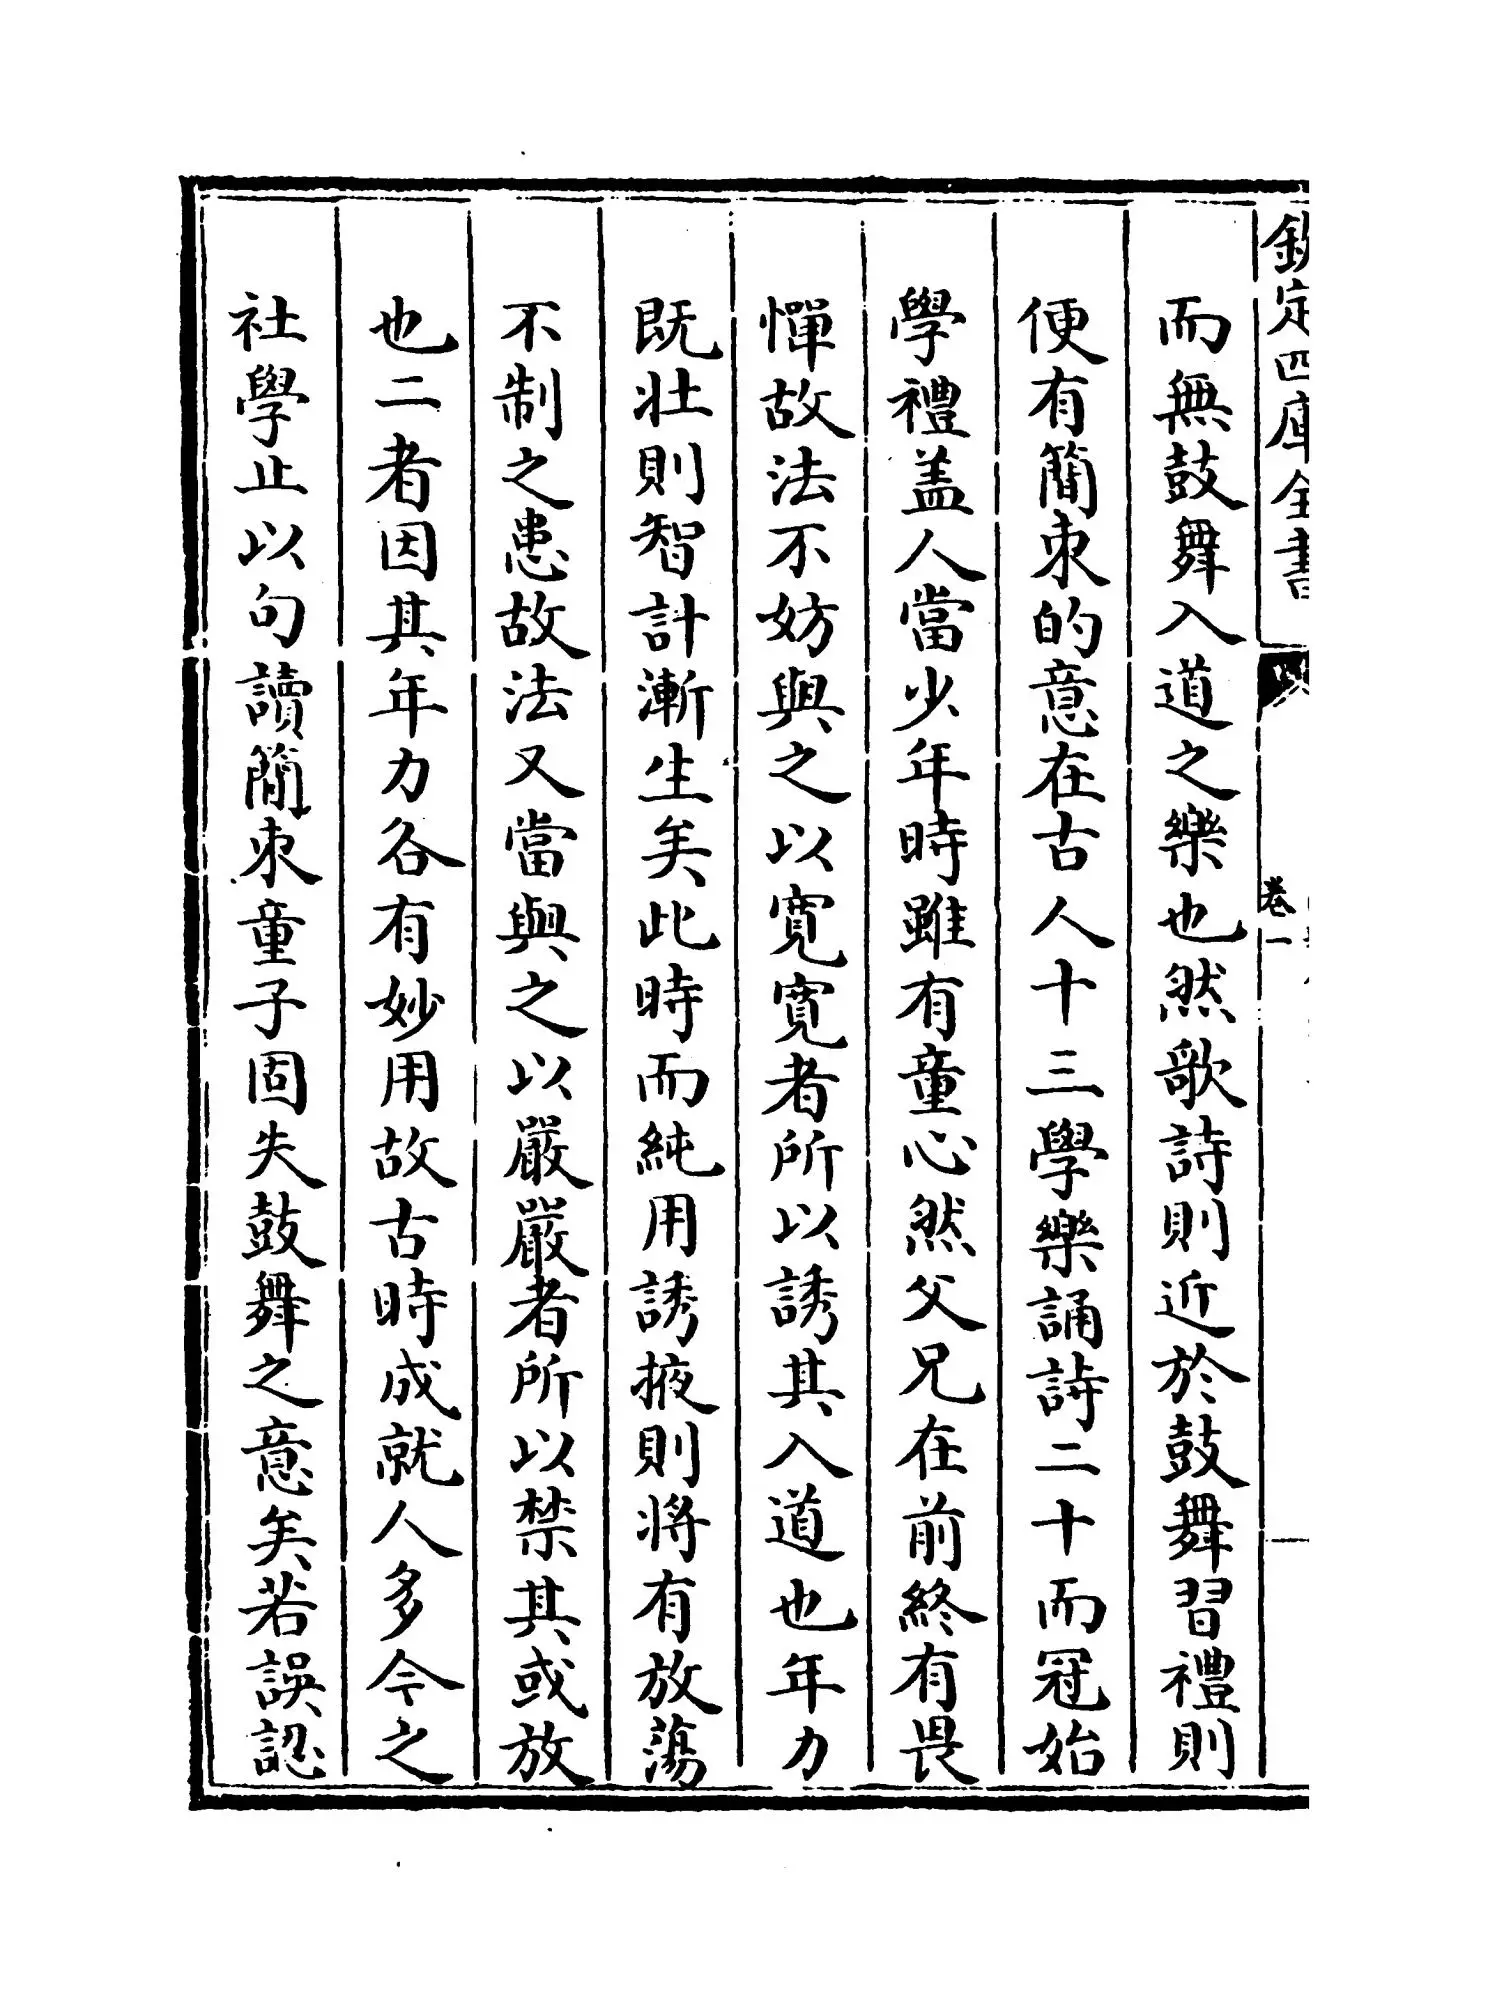 欽定四庫全書
卷一
而無鼓舞入道之樂也然歌詩則近於鼓舞習禮則
便有簡束的意在古人十三學樂誦詩二十而冠始
學禮盖人當少年時雖有童心然父兄在前終有畏
憚故法不妨與之以寛寛者所以誘其入道也年力
既壮則智計漸生矣此時而純用誘掖則将有放蕩
不制之患故法又當與之以嚴嚴者所以禁其或放
也二者因其年力各有妙用故古時成就人多今之
社學止以句讀簡束童子固失鼓舞之意矣若誤認